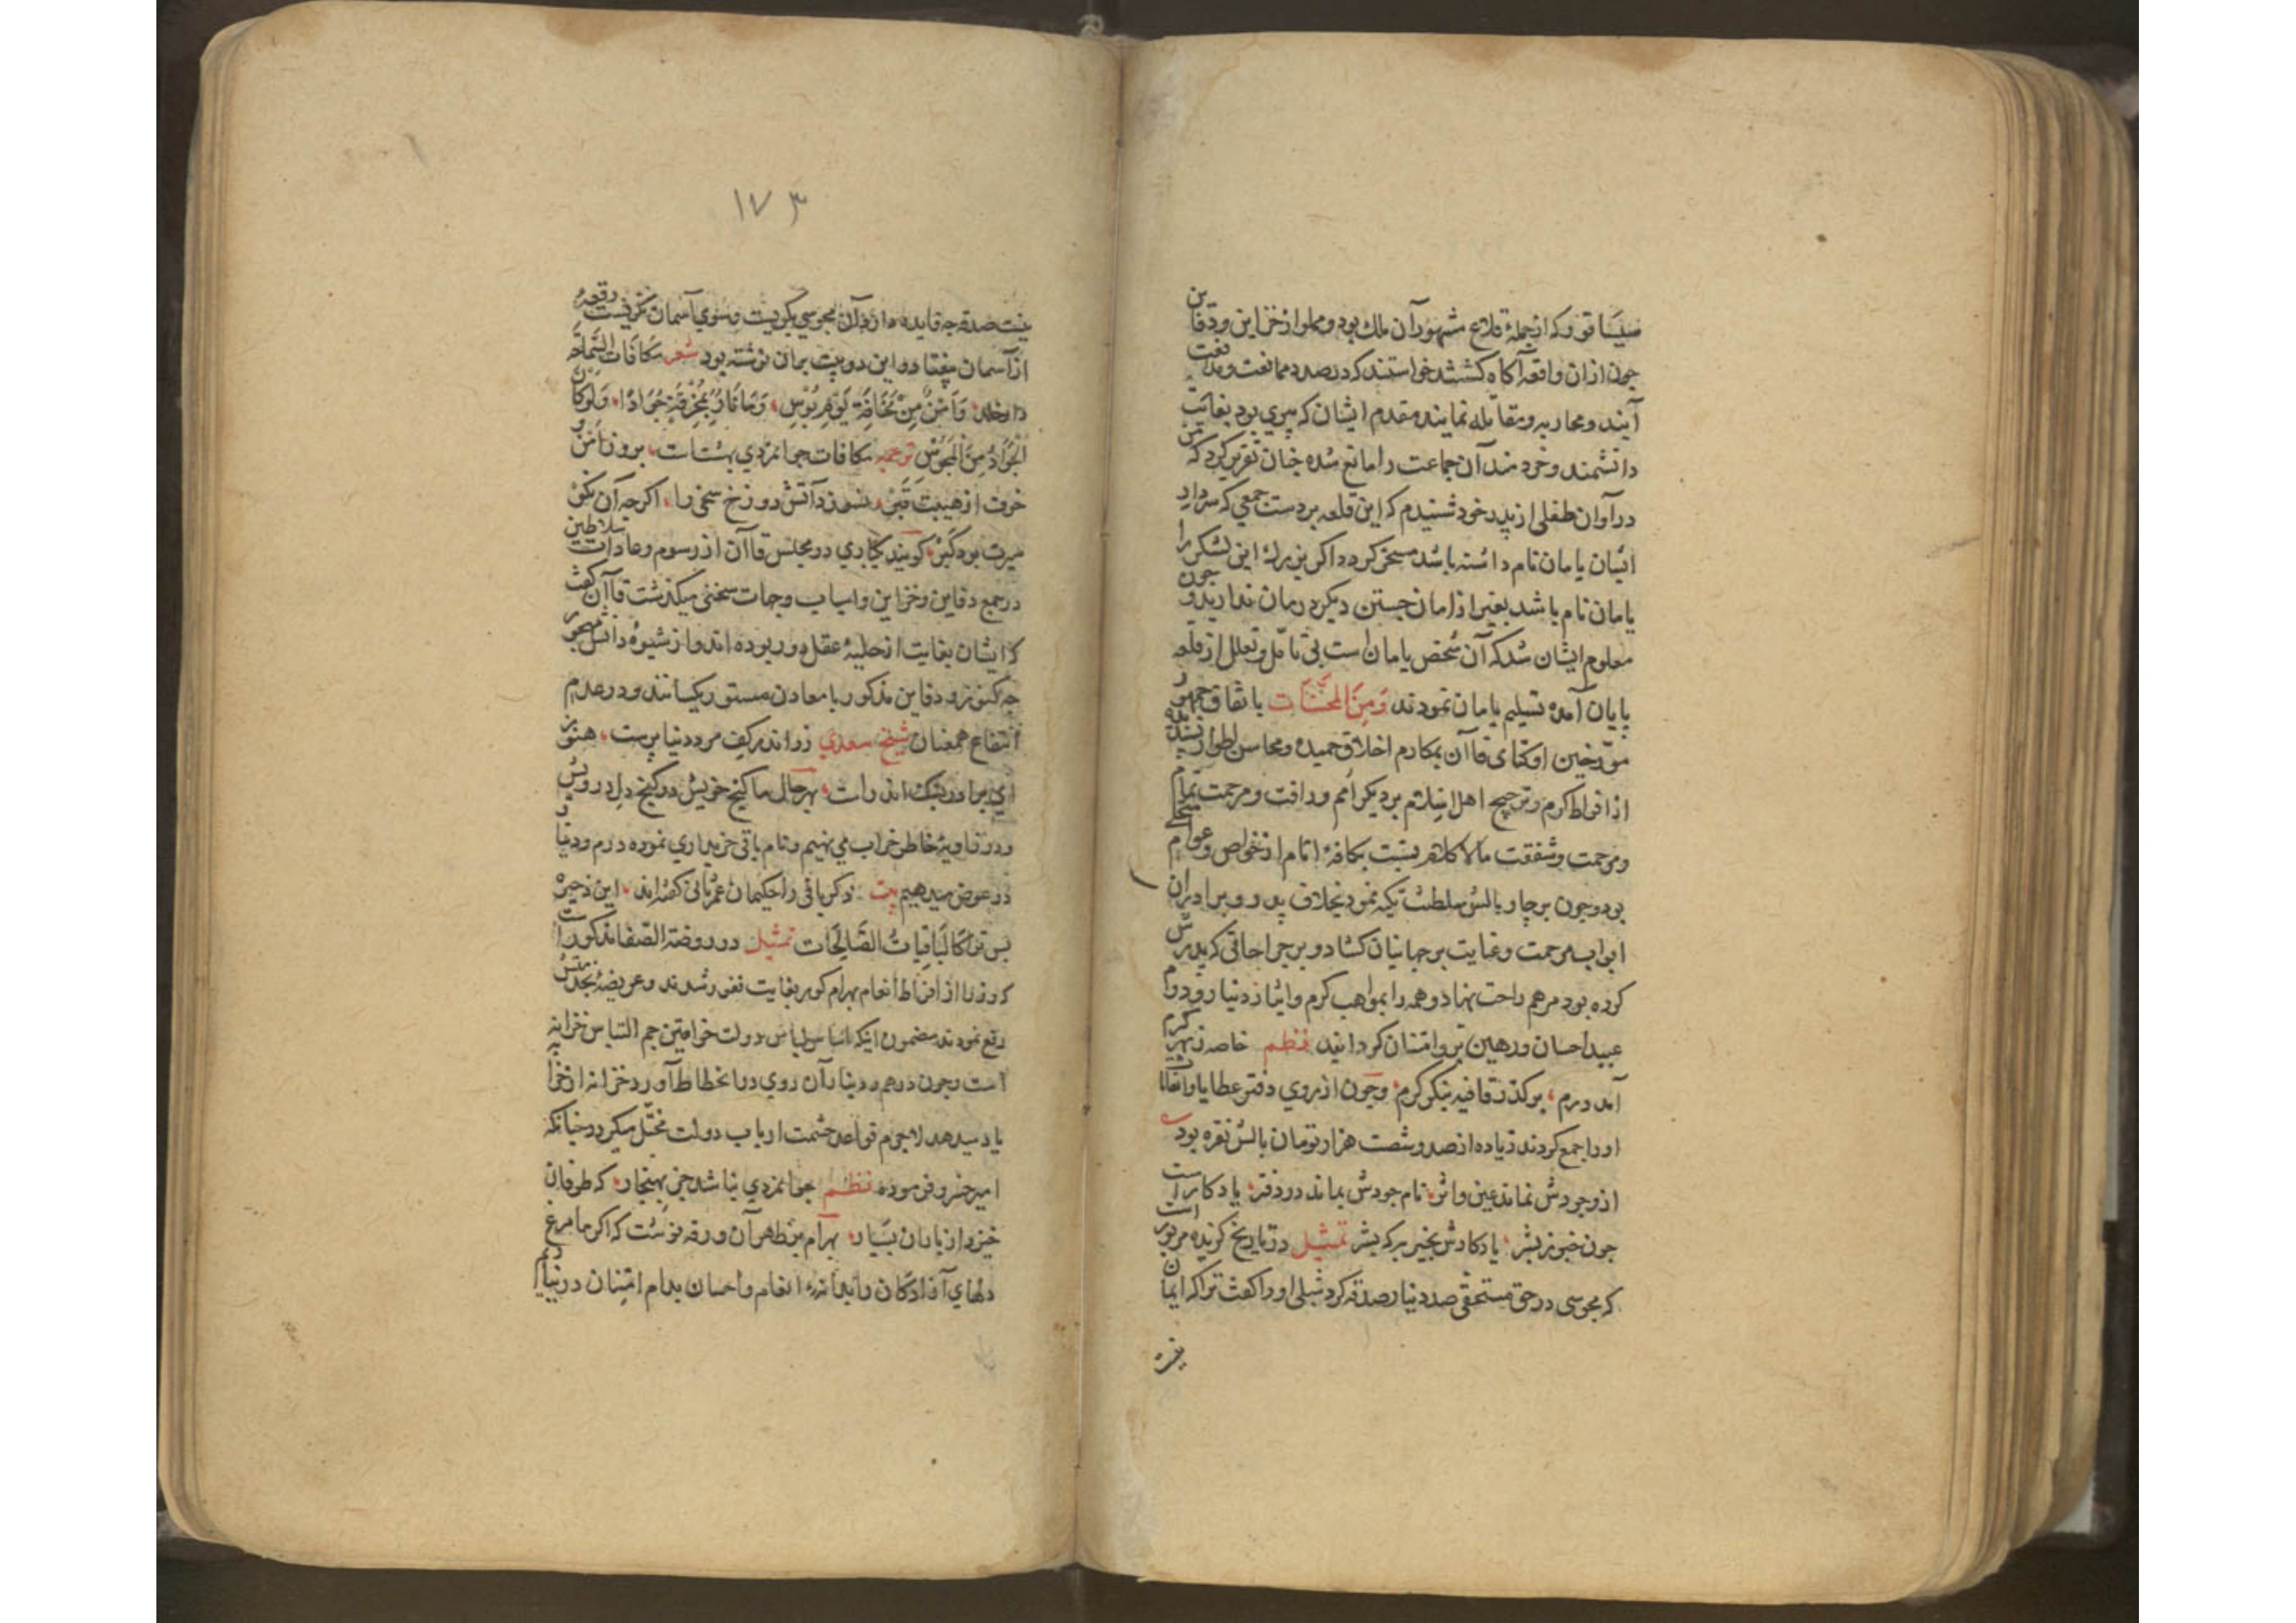 صلیاقور که از جملهٔ قلاع مشهور آن ملک بود و مملو از خزاین و دفاین
جون ازان واقعه آکاه کشتند خواستند که در صدد ممانعت و مدافعت
آیند و محاربه و مقابله نمایند مقدم ایشان که پیری بود بغایت
دانشمند و خردمند آن جماعت را مانع شده جنان تقریر کرد که من
در آوان طفلی از پدر خود شنیدم که این قلعه بر دست جمعی که سردار
ایشان یامان نام داشته باشد مسخر کردد اکر بزرک این لشکر را
یامان نام باشد بغیر از امان جستن دیکر درمان ندارید و جون
معلوم ایشان شد که آن شخص یامان است بی تامل و تعلل از قلعه
بپایان آمده تسلیم یامان نمودند وَمِنَ المحسَّنات باتفاق جمهور
مورخین اوکتای قاآن بمکارم اخلاق حمیده و محاسن اطوار پسندیده
از افراط کرم و ترجیح اهل اسلام بر دیکر امم و رافت و مرحمت تمام
و مرحمت و شفقت مالاکلام بنسبت بکافهٔ انام از خواص و عوام متحلی
بود و جون برجار بالش سلطنت تکیه نمود بخلاف پدر و برادران
ابواب مرحمت و عنایت بر جهانیان کشاد و بر جراحاتی که پدرش
کرده بود مرهم راحت نهاد و همه را بمواهب کرم وایثار دنیا رو دوام
عبید احسان و رهین بر و امتنان کردانید نظم خاصه ز بهر کرم
آمد درم، بر کذر قافیه بنکر کرم، وجون از روی دفتر عطایا و
او را جمع کردند زیاده از صد و شصت هزار تومان بالش نقره بود
از وجودش نماند عین و اثر، نام جودش بماند در دفتر، یادکار است
جون خبر ز بشر، یادکارش بخیر به که بشر تمثیل در تاریخ کزیده مزبور است
که مجوسی در حق مستحقی صد دینار صدقه کرد شبلی او را کفت ترا که ایمان
نیست
۱۷۳
نیست صدقه جه فایده دارد آن مجوسی بکریست و سوی آسمان نکریست رقعهٔ
از آسمان بیفتاد و این دو بیت بران نوشته بود شعر مکافات السَّماحة
دارخلد، وَاَمْنٌ مِنْ مَخَافَةِ یَوْمِ بُوْسٍ، وَمَا نَارٌ بِمُحْرِقَةٍ جَوَادًا، وَلَوْ کَانَ
الْجَوَادُ مِنَ الْمَجُوْسِ ترجمه مکافات جوانمردی بهشتست، بروز امن و
خوف از هیبت قبر، نسوزد آتش دوزخ سخی را، اکرجه آن نکو
سیرت بود کبر، کویند که باری در مجلس قاآن از رسوم و عادات سلاطین
در جمع دفاین و خزاین و اسباب وجهات سخنی میکذشت قاآن کفت
که ایشان بغایت از حلیهٔ عقل دور بوده اند و از شیوهٔ دانش مهجور
جه کنوز و دفاین مذکور با معادن مستور یکسانند و در عدم
انتفاع همعنان شیخ سعدی زر اندر کف مرد دنیا پرست، هنوز
ای برادر بسنک اندرست، بهرحال ما کنج خویش در کنج دل درویش
و در زاویهٔ خاطر خراب می نهیم و نام باقی خریداری نموده درم و دینار
در عوض میدهیم بیت ذکر باقی را حکیمان عمر ثانی کفته اند، این ذخیره
بس ترا کالبَاقِیاتُ الصَّالِحَات تمثیل در روضة الصفا مذکور است
که وزرا از افراط انعام بهرام کور بغایت نفور شدند و عریضهٔ بخدمتش
رفع نمودند مضمون اینکه اساس لباس دولت خواقین جم التباس خزانه
است وجون درهم و دینار آن روی در انحطاط آورد خزانه از خزا
یاد میدهد لاجرم قواعد حشمت ارباب دولت مختل میکردد جنانکه
امیر خسرو فرموده نظم جوانمردی نباشد جز بهنجار، که طوفان
خیزد از باران بسیار، بهرام بر ظهر آن ورقه نوشت که اکر ما مرغ
دلهای آزادکان را بدانهٔ انعام واحسان بدام امتنان در نیاریم